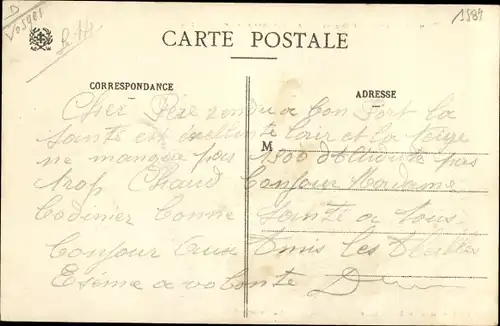 Vosges
1984
CARTE POSTALE
CORRESPONDANCE
ADRESSE
Cher Père rendu a bon Port la
santé est exellente l'air et la neige
M
ne manque pas 1300 d'Altitude pas
trop Chaud bonjour Madame
Codinier bonne santé a tous
bonjour aux Amis les
a volonté